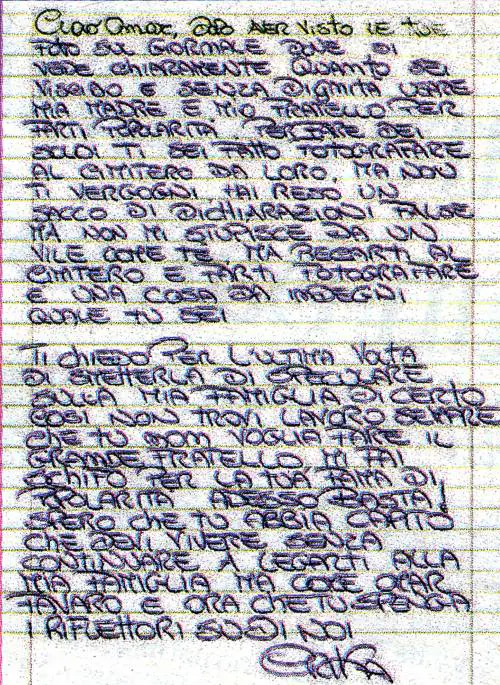 Ciao Omar, DOPO AVER VISTO LE TUE
FOTO SUL GIORNALE DOVE SI
VEDE CHIARAMENTE QUANTO SEI
VISCIDO E SENZA DIGNITÀ USARE
MIA MADRE E MIO FRATELLO PER
FARTI POPOLARITA PER FARE DEI
SOLDI TI SEI FATTO FOTOGRAFARE
AL CIMITERO DA LORO, MA NON
TI VERGOGNI, HAI RESO UN
SACCO DI DICHIARAZIONI FALSE
MA NON MI STUPISCE DA UN
VILE COME TE, MA RECARTI AL
CIMITERO E FARTI FOTOGRAFARE
E UNA COSA DA INDEGNI
QUALE TU SEI
TI CHIEDO PER L'ULTIMA VOLTA
DI SMETTERLA DI SPECULARE
SULLA MIA FAMIGLIA DI CERTO
COSI NON TROVI LAVORO SEMPRE
CHE TU NON VOGLIA FARE IL
GRANDE FRATELLO. MI FAI
SCHIFO PER LA TUA FAMA DI
POPOLARITA ADESSO BASTA!
SPERO CHE TU ABBIA CAPITO
CHE DEVI VIVERE SENZA
CONTINUARE A LEGARTI ALLA
MIA FAMIGLIA MA COME OMAR
FAVARO E ORA CHE TU SPENGA
I RIFLETTORI SU DI NOI
Erika